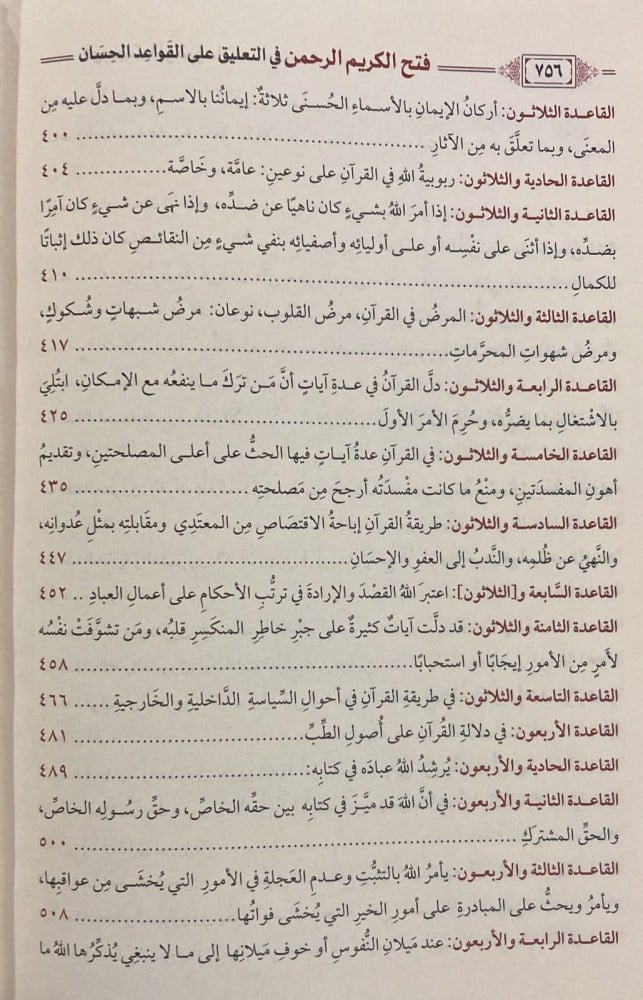 ٧٥٦ فتح الكريم الرحمن في التعليق على القَواعِد الحِسَان
القاعدة الثلاثون: أركانُ الإيمانِ بالأسماءِ الحُسنَى ثلاثةٌ: إيمانُنا بالاسمِ، وبما دلَّ عليه مِن
المعنَى، وبما تعلَّقَ به مِن الآثارِ ..... ٤٠٠
القاعدة الحادية والثلاثون: ربوبيةُ اللهِ في القرآنِ على نوعينِ: عامَّة، وخَاصَّة..... ٤٠٤
القاعدة الثانية والثلاثون: إذا أمرَ اللهُ بشيءٍ كان ناهيًا عن ضدِّه، وإذا نهَى عن شيءٍ كان آمِرًا
بضدِّه، وإذا أثنَى على نفْسِه أو على أوليائِه وأصفيائِه بنفي شيءٍ مِن النقائصِ كان ذلك إثباتًا
للكمالِ..... ٤١٠
القاعدة الثالثة والثلاثون: المرضُ في القرآنِ، مرضُ القلوب، نوعان: مرضُ شبهاتٍ وشُكوكٍ،
ومرضُ شهواتِ المحرَّماتِ..... ٤١٧
القاعدة الرابعة والثلاثون: دلَّ القرآنُ في عدةِ آياتٍ أنَّ مَن تركَ ما ينفعُه مع الإمكانِ، ابتُلِيَ
بالاشْتغالِ بما يضرُّه، وحُرِمَ الأمرَ الأولَ..... ٤٢٥
القاعدة الخامسة والثلاثون: في القرآنِ عدةُ آياتٍ فيها الحثُّ على أعلى المصلحتينِ، وتقديمُ
أهونِ المفسدَتينِ، ومنْعُ ما كانت مفْسدَتُه أرجحَ مِن مَصلحتِه ..... ٤٣٥
القاعدة السادسة والثلاثون: طريقةُ القرآنِ إباحةُ الاقتصَاصِ مِن المعتدِي ومقَابلتِه بمثْلِ عُدوانِه،
والنَّهيُ عن ظُلمِه، والنَّدبُ إلى العفوِ والإحسَانِ..... ٤٤٧
القاعدة السَّابعة و[الثلاثون]: اعتبرَ اللهُ القصْدَ والإرادةَ في ترتُّبِ الأحكامِ على أعمالِ العبادِ .. ٤٥٢
القاعدة الثامنة والثلاثون: قد دلَّت آياتٌ كثيرةٌ على جبْرِ خاطرِ المنكَسِرِ قلبُه، ومَن تشوَّفَتْ نفْسُه
لأمرٍ مِن الأمورِ إيجَابًا أو استحبابًا..... ٤٥٨
القاعدة التاسعة والثلاثون: في طريقةِ القرآنِ في أحوالِ السِّياسةِ الدَّاخليةِ والخَارجيةِ ..... ٤٦٦
القاعدة الأربعون: في دلالةِ القرآنِ على أُصولِ الطِّبِّ..... ٤٨١
القاعدة الحادية والأربعون: يُرشِدُ اللهُ عبادَه في كتابِه:..... ٤٨٩
القاعدة الثانية والأربعون: في أنَّ اللهَ قد ميَّزَ في كتابِه بين حقِّه الخاصِّ، وحقِّ رسُولِه الخاصِّ،
والحقِّ المشتركِ ..... ٥٠٠
القاعدة الثالثة والأربعون: يأمرُ اللهُ بالتثبُّتِ وعدمِ العَجلةِ في الأمورِ التي يُخشَى مِن عواقبِها،
ويأمرُ ويحثُّ على المبادرةِ على أمورِ الخيرِ التي يُخشَى فواتُها..... ٥٠٨
القاعدة الرابعة والأربعون: عند مَيلانِ النُّفوسِ أو خوفِ مَيلانِها إلى ما لا ينبغِي يُذكِّرُها اللهُ ما